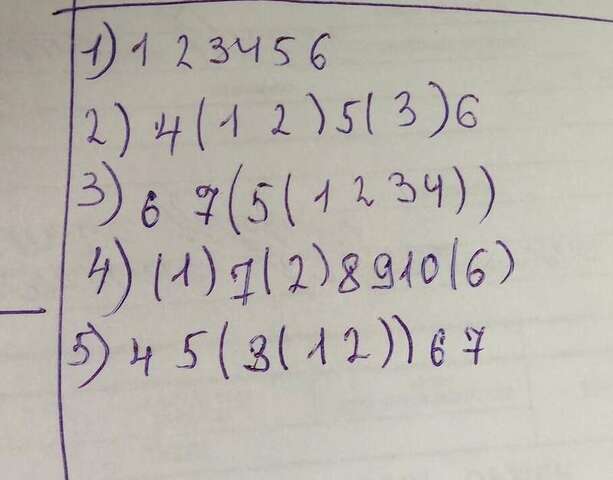 1) 1 2 3 4 5 6
2) 4 ( 1 2 ) 5 ( 3 ) 6
3) 6 7 ( 5 ( 1 2 3 4 ) )
4) ( 1 ) 7 ( 2 ) 8 9 10 ( 6 )
5) 4 5 ( 3 ( 1 2 ) ) 6 7